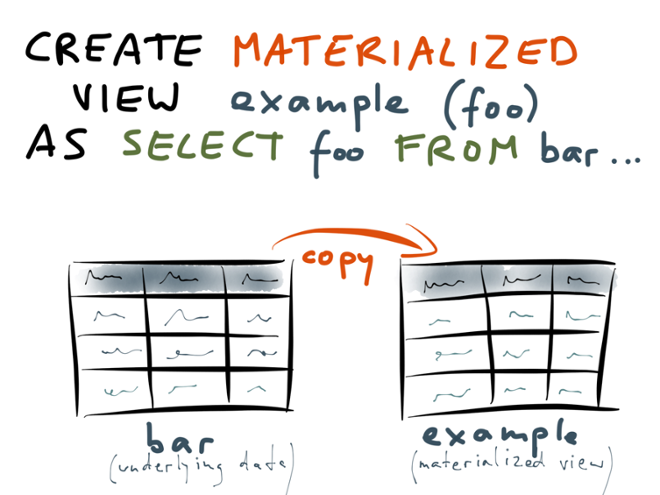 CREATE MATERIALIZED
VIEW example (foo)
AS SELECT foo FROM bar...
copy
bar
(underlying data)
example
(materialized view)